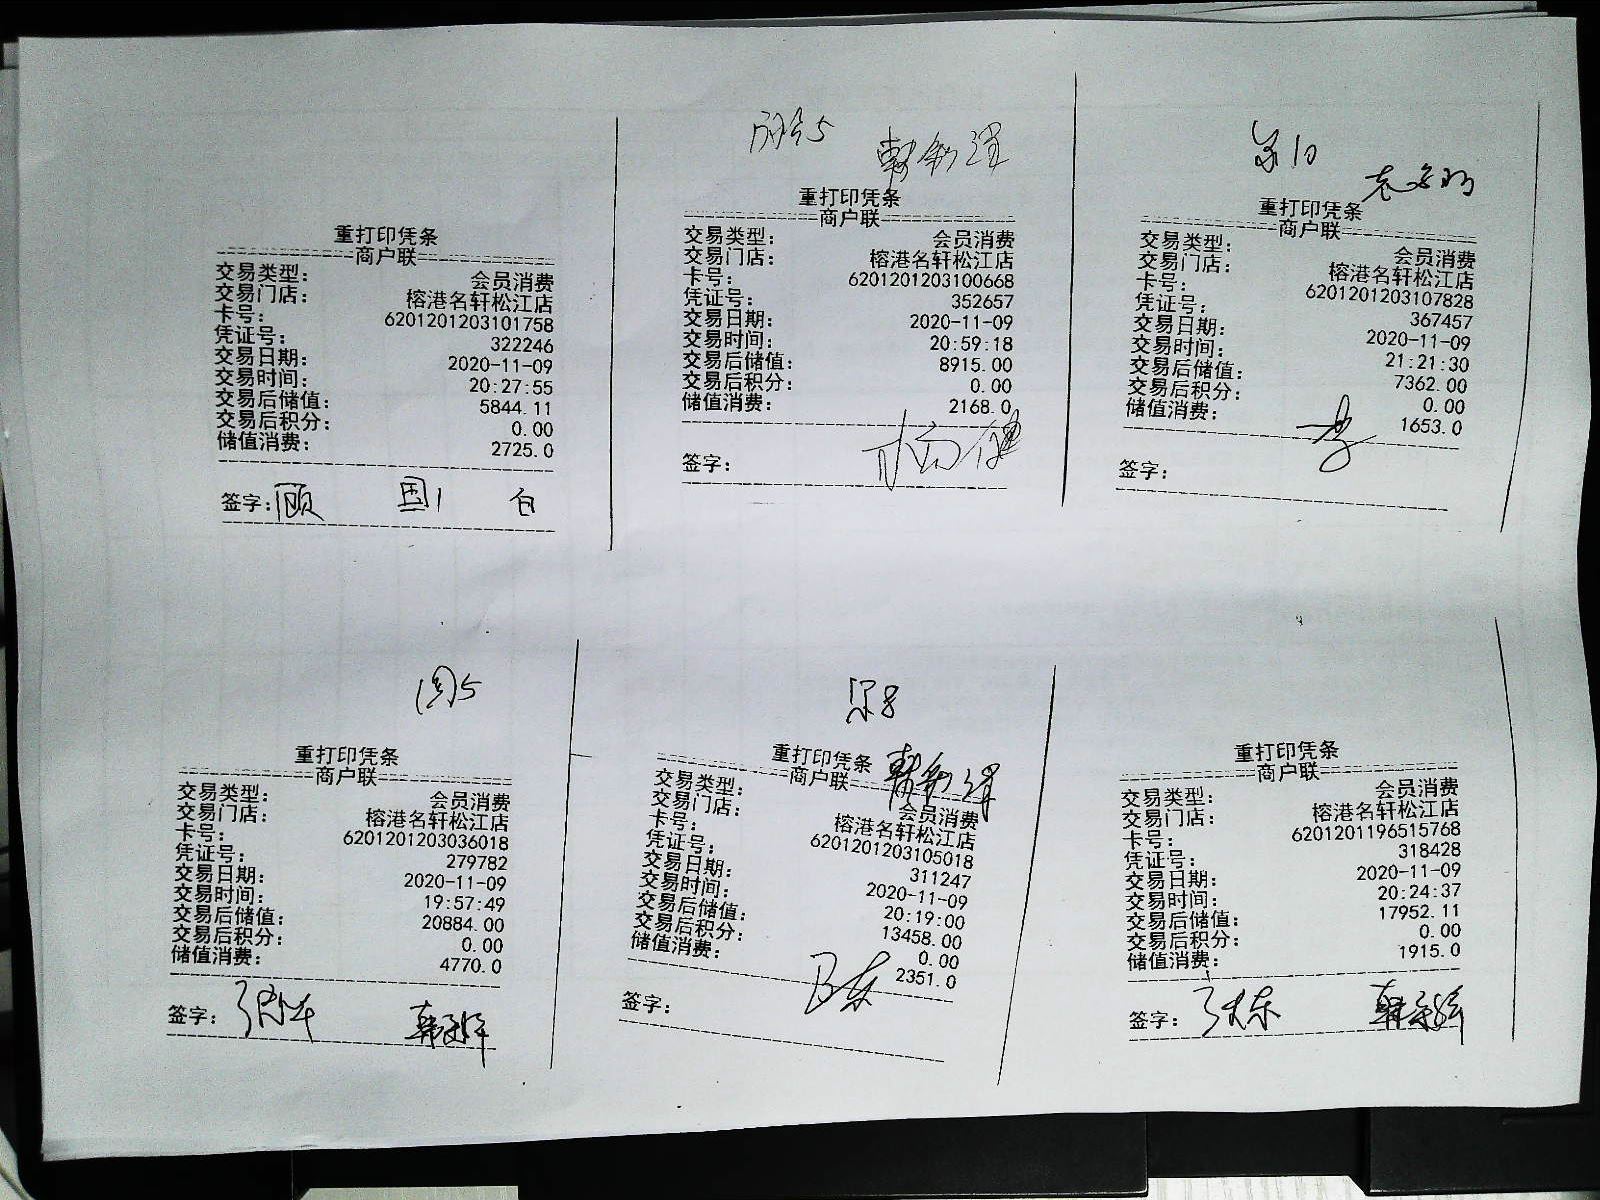 重打印凭条
商户联
交易类型: 会员消费
交易门店: 榕港名轩松江店
卡号: 6201201203101758
凭证号: 322246
交易日期: 2020-11-09
交易时间: 20:27:55
交易后储值: 5844.11
交易后积分: 0.00
储值消费: 2725.0
签字: 顾 国1 白
重打印凭条
商户联
交易类型: 会员消费
交易门店: 榕港名轩松江店
卡号: 6201201203100668
凭证号: 352657
交易日期: 2020-11-09
交易时间: 20:59:18
交易后储值: 8915.00
交易后积分: 0.00
储值消费: 2168.0
签字:
重打印凭条
商户联
交易类型: 会员消费
交易门店: 榕港名轩松江店
卡号: 6201201203107828
凭证号: 367457
交易日期: 2020-11-09
交易时间: 21:21:30
交易后储值: 7362.00
交易后积分: 0.00
储值消费: 1653.0
签字:
重打印凭条
商户联
交易类型: 会员消费
交易门店: 榕港名轩松江店
卡号: 6201201203036018
凭证号: 279782
交易日期: 2020-11-09
交易时间: 19:57:49
交易后储值: 20884.00
交易后积分: 0.00
储值消费: 4770.0
签字:
重打印凭条
商户联
交易类型: 会员消费
交易门店: 榕港名轩松江店
卡号: 6201201203105018
凭证号: 311247
交易日期: 2020-11-09
交易时间: 20:19:00
交易后储值: 13458.00
交易后积分: 0.00
储值消费: 2351.0
签字:
重打印凭条
商户联
交易类型: 会员消费
交易门店: 榕港名轩松江店
卡号: 6201201196515768
凭证号: 318428
交易日期: 2020-11-09
交易时间: 20:24:37
交易后储值: 17952.11
交易后积分: 0.00
储值消费: 1915.0
签字: